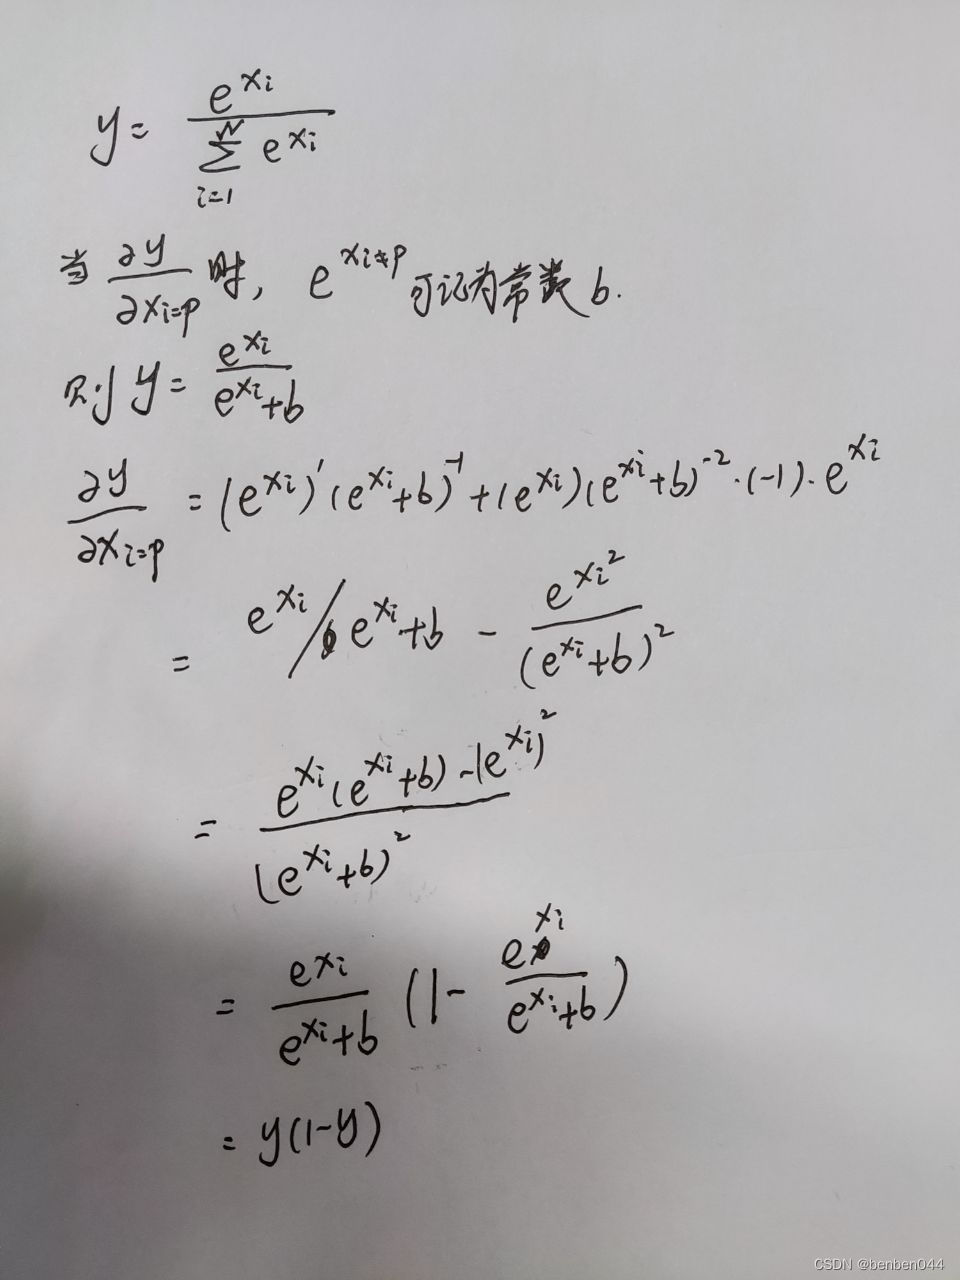 y = \frac{e^{x_i}}{\sum_{i=1}^{N} e^{x_i}}
当 \frac{∂y}{∂x_{i=p}} 时, e^{x_{i≠p}} 可记为常数 b.
则 y = \frac{e^{x_i}}{e^{x_i}+b}
\frac{∂y}{∂x_{i=p}} = (e^{x_i})'(e^{x_i}+b)^{-1} + (e^{x_i})(e^{x_i}+b)^{-2}·(-1)·e^{x_i}
= e^{x_i} / e^{x_i}+b - \frac{e^{x_i^2}}{(e^{x_i}+b)^2}
= \frac{e^{x_i}(e^{x_i}+b)-(e^{x_i})^2}{(e^{x_i}+b)^2}
= \frac{e^{x_i}}{e^{x_i}+b} (1 - \frac{e^{x_i}}{e^{x_i}+b})
= y(1-y)
CSDN @benben044